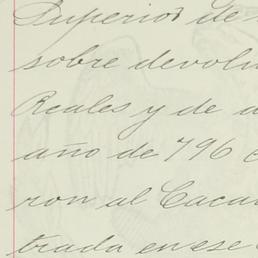 Superior de
sobre devolu
Reales y de
año de 796
ron al Caca
trada en ese